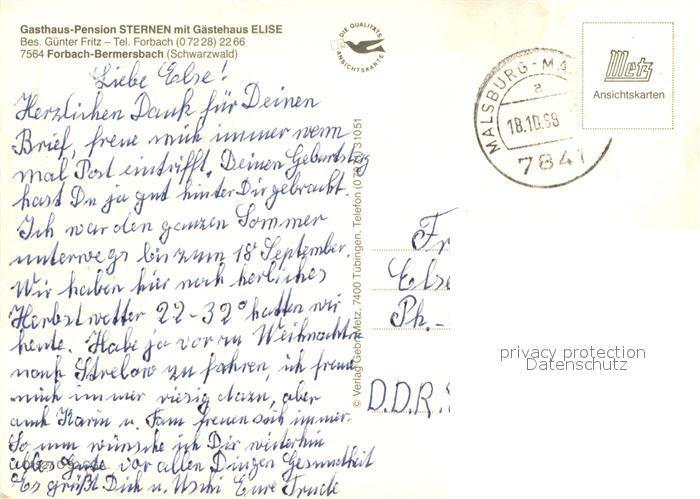 Gasthaus-Pension STERNEN mit Gästehaus ELISE
Bes. Günter Fritz – Tel. Forbach (0 72 28) 22 66
7564 Forbach-Bermersbach (Schwarzwald)
Liebe Else!
Herzlichen Dank für Deinen
Brief, freue mich immer wenn
mal Post eintrifft. Deinen Geburtstag
hast Du ja gut hinter Dir gebracht.
Ich war den ganzen Sommer
unterwegs bis zum 18 September.
Wir haben hier noch herliches
Herbstwetter 22-32° hatten wir
heute. Habe ja vor zu Weihnachten
nach Strelow zu fahren, ich freue
mich immer riesig dazu, aber
auch Karin u. Fam freuen sich immer.
So nun wünsche ich Dir weiterhin
alles Gute vor allen Dingen Gesundheit
Es grüßt Dich u. Uschi Eure Trude
DIE QUALITÄTS
ANSICHTSKARTE
© Verlag Gebr. Metz, 7400 Tübingen, Telefon (0 70 71) 31051
MALSBURG-MA
a
18.10.89
7841
Metz
Ansichtskarten
Fr
Else
Ph.-
D.D.R.
privacy protection
Datenschutz